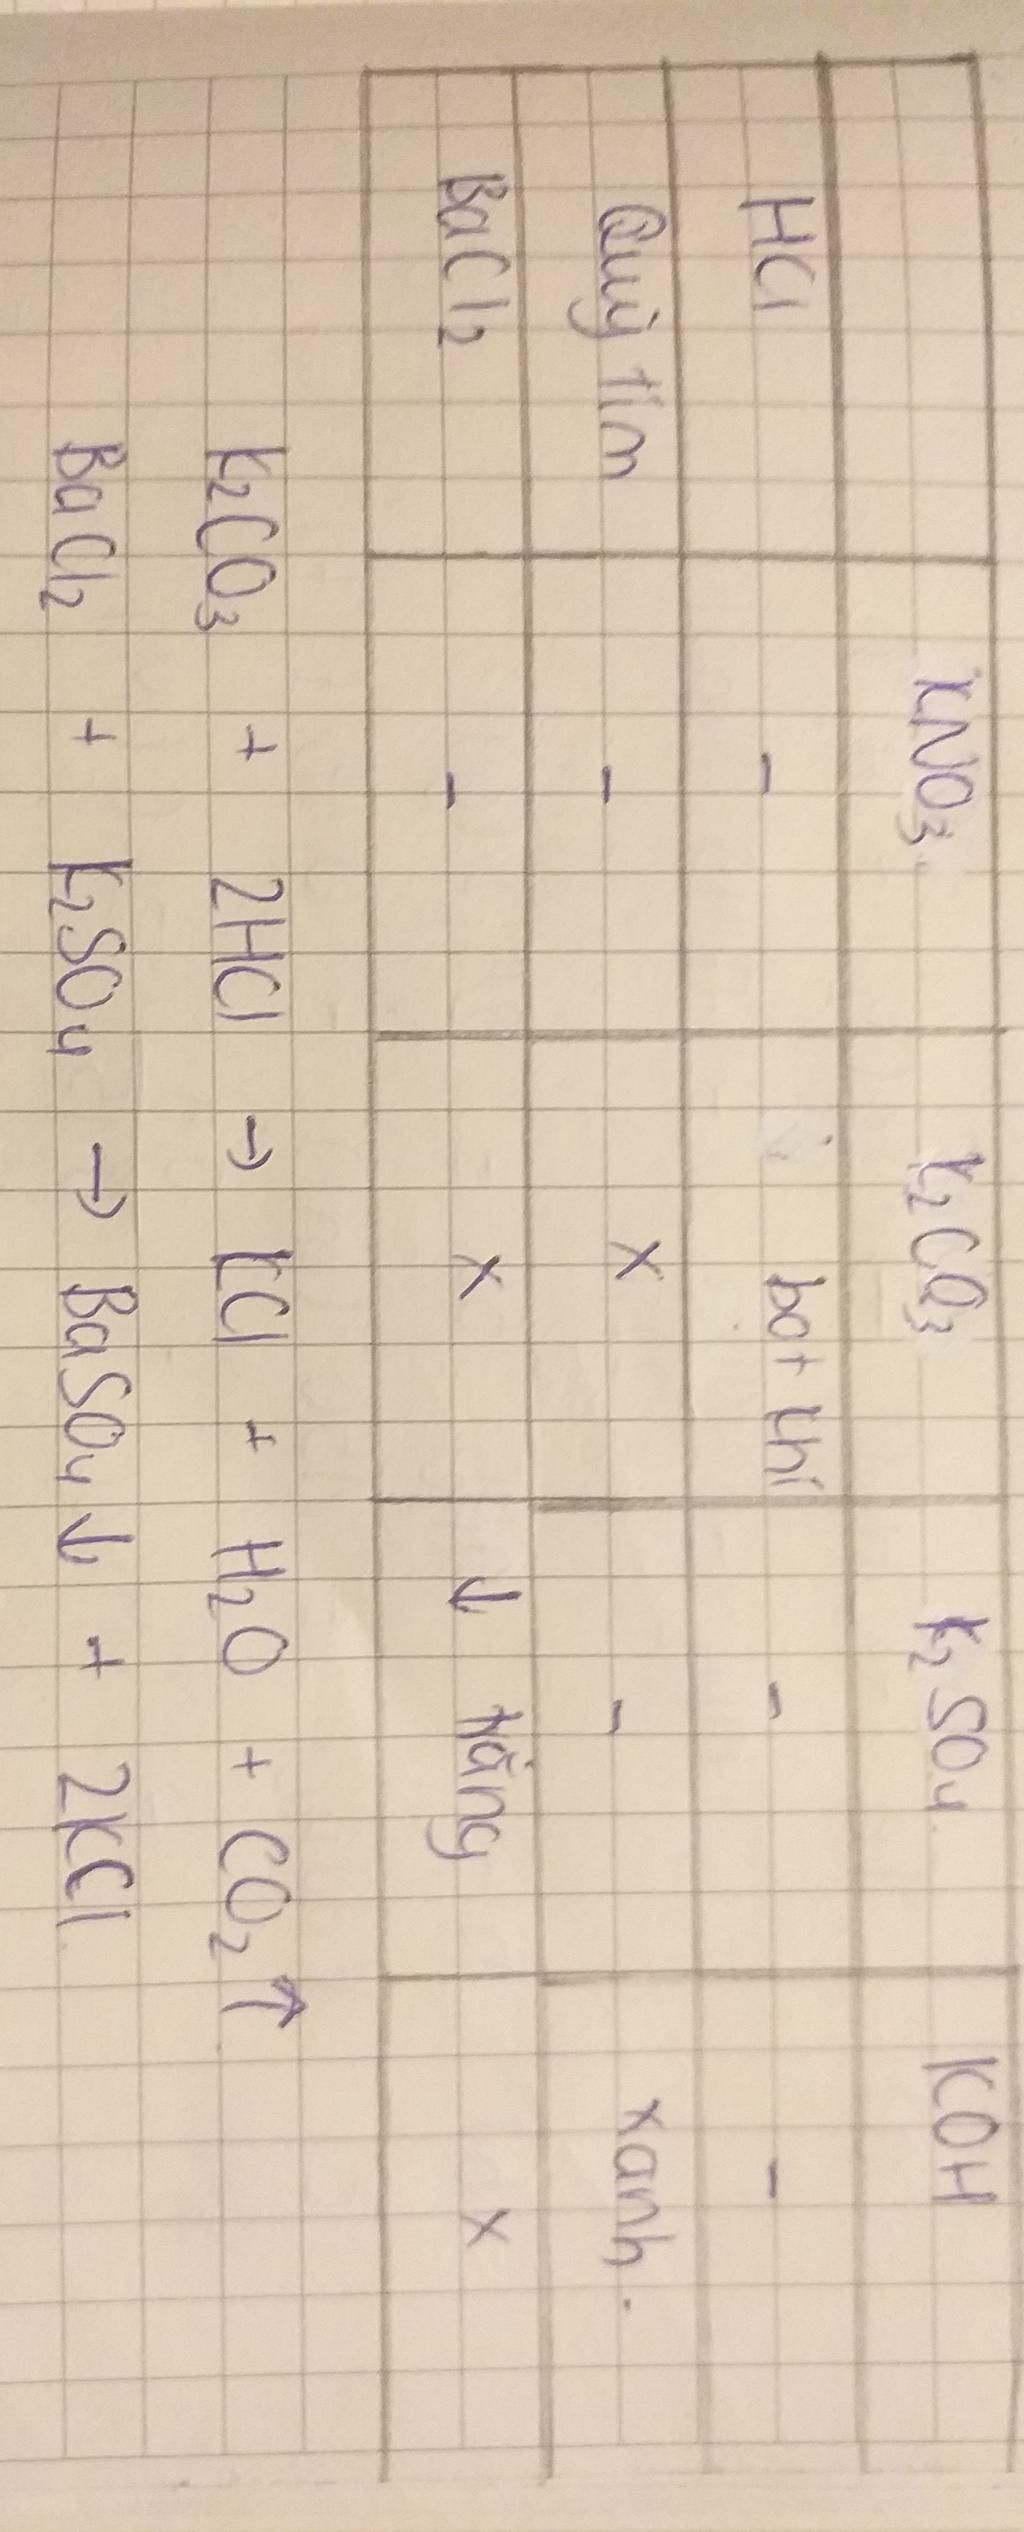 KNO₃ K₂CO₃ K₂SO₄ KOH
HCl - bọt khí - -
Quỳ tím - x - xanh.
BaCl₂ - x ↓ trắng x
K₂CO₃ + 2HCl → KCl + H₂O + CO₂ ↑
BaCl₂ + K₂SO₄ → BaSO₄ ↓ + 2KCl